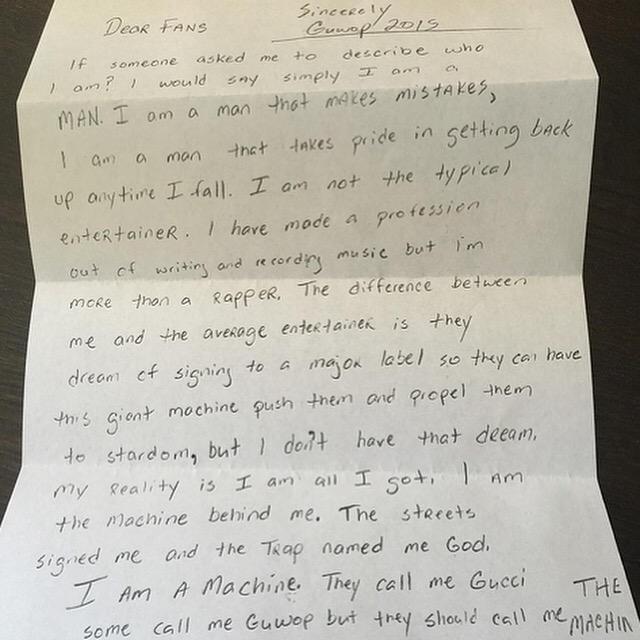 Dear Fans
Sincerely
Guwop 2015
If someone asked me to describe who
I am? I would say simply I am a
MAN. I am a man that makes mistakes,
I am a man that takes pride in getting back
up anytime I fall. I am not the typical
entertainer. I have made a profession
out of writing and recording music but i'm
more than a rapper. The difference between
me and the average entertainer is they
dream of signing to a major label so they can have
this giant machine push them and propel them
to stardom, but I don't have that dream.
My reality is I am all I got. I am
the machine behind me. The streets
signed me and the Trap named me God.
I Am A Machine. They call me Gucci
some call me Guwop but they should call me THE
MACHIN